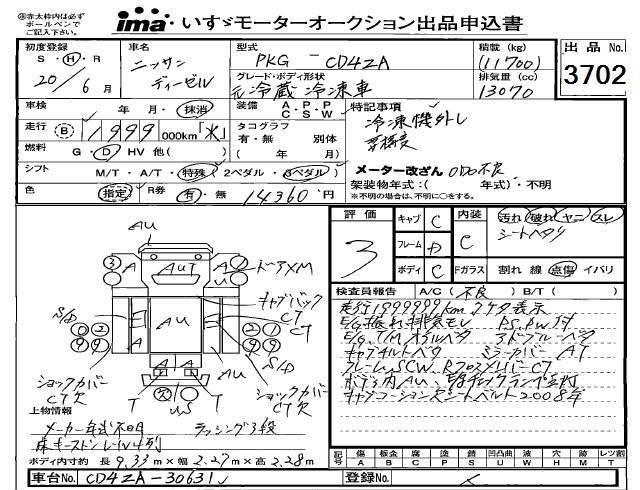 ㊟赤太枠内は必ず
ボールペンで
ご記入下さい。
ima いすゞモーターオークション出品申込書
初度登録 S・H・R 20年 6月
車名 ニッサン ディーゼル
型式 PKG-CD4ZA
グレード・ボディ形状 元冷蔵冷凍車
積載(kg) (11700)
排気量(cc) 13070
出品No. 3702
車検 年 月・抹消
装備 A.P.P C.S W
特記事項 冷凍機外し
走行 B 1999 000km「K」
タコグラフ 有・無 別体 ( 年 月)
要検査
燃料 G・D HV 他( )
シフト M/T・A/T・特殊(2ペダル・3ペダル)
メーター改ざん ODO不良
架装物年式:( 年式)・不明
※不明の場合は、不明に○をする。
色 (指定) R券 有・無 14360円
評価 3
キャブ C
フレーム D
ボディ C
内装 C
汚れ 破れ ヤニ スレ
シートヘタリ
Fガラス 割れ 線 点傷 イバリ
検査員報告 A/C(不良) B/T( )
走行1999999km 7ケタ表示
E/G振れ 排気モレ PS.PW付
E/G.T/M オイルベタ アドブルーベタ
キャブチルトベタ ミラーカバーAT
フレームSCW
キャブコーションプレシートベルト2008年
AU
AUT
A
ドアXM
キャブバック
CT
S/D
ショックカバー
CT欠
T US T
上物情報
メーカー年式不明 ラッシング3段
床キーストンレール4列
ボディ内寸約 長 9.33m×幅 2.27m×高 2.28m
記号 傷A 板金B 腐C 塗P 錆S 凹凸曲U 波W 穴H 跡M レツ割T
車台No. CD4ZA-30631
登録No.